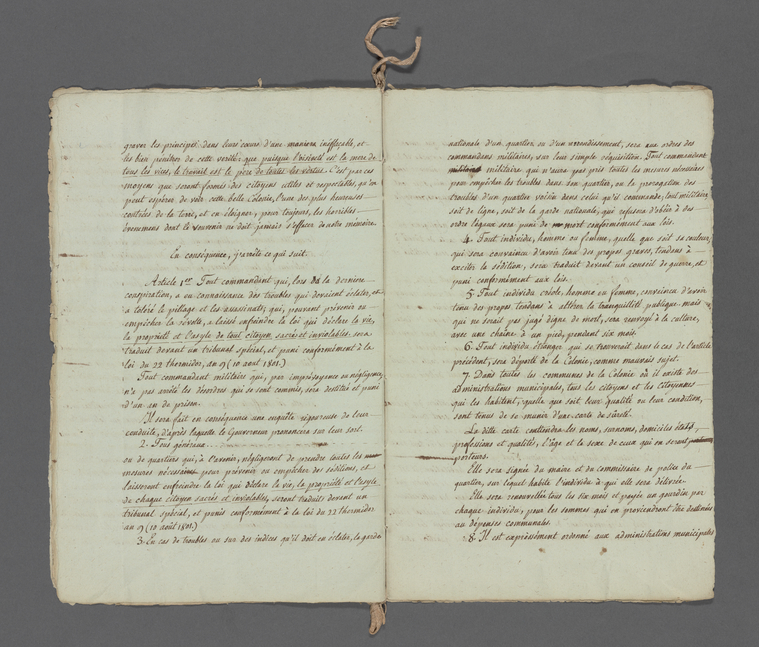 graver les principes dans leurs cœurs d'une manière ineffaçable, et
les bien pénétrer de cette verité: que puisque l'oisiveté est la mere de
tous les vices, le travail est le père de toutes les vertus. C'est par ces
moyens que seront formés des citoyens utiles et respectables, qu'on
peut espérer de voir cette belle Colonie, l'une des plus heureuses
contrées de la terre, et en éloigner, pour toujours, les horribles
évenemens dont le souvenir ne doit jamais s'effacer de notre mémoire.
En conséquence, j'arrête ce qui suit.
Article 1er. Tout commandant qui, lors de la derniere
conspiration, a eu connaissance des troubles qui devaient éclater, et
a toléré le pillage et les assassinats; qui, pouvant prévenir ou
empêcher la révolte, a laissé enfreindre la loi qui déclare la vie,
la propriété et l'asyle de tout citoyen sacrés et inviolables, sera
traduit devant un tribunal spécial, et puni conformément à la
loi du 22 thermidor, an 9 (10 aout 1801.)
Tout commandant militaire qui, par imprévoyance ou négligence,
n'a pas arrêté les désordres qui se sont commis, sera destitué et puni
d'un an de prison.
Il sera fait en conséquence une enquête rigoureuse de leur
conduite, d'après laquelle le Gouverneur prononcera sur leur sort.
2. Tous généraux
ou de quartiers qui, à l'avenir, négligeront de prendre toutes les
mesures nécessaires pour prévenir ou empêcher des séditions, et
laisseront enfreindre la loi qui déclare la vie, la propriété et l'asyle
de chaque citoyen sacrés et inviolables, seront traduits devant un
tribunal spécial, et punis conformément à la loi du 22 thermidor
an 9 (10 août 1801.)
3. En cas de troubles ou sur des indices qu'il doit en éclater, la garde
nationale d'un quartier ou d'un arrondissement, sera aux ordres des
commandans militaires, sur leur simple réquisition. Tout commandant
militaire qui n'aura pas pris toutes les mesures nécessaires
pour empêcher les troubles dans son quartier, ou la propagation des
troubles d'un quartier voisin dans celui qu'il commande, tout militaire,
soit de ligne, soit de la garde nationale, qui refusera d'obéir à des
ordres légaux sera puni de mort conformément aux lois.
4. Tout individu, homme ou femme, quelle que soit sa couleur,
qui sera convaincu d'avoir tenu des propos graves, tendans à
exciter la sédition, sera traduit devant un conseil de guerre, et
puni conformément aux lois.
5. Tout individu créole, homme ou femme, convaincu d'avoir
tenu des propos tendans à altérer la tranquillité publique, mais
qui ne serait pas jugé digne de mort, sera renvoyé à la culture,
avec une chaîne à un pied, pendant six mois.
6. Tout individu étranger qui se trouverait dans le cas de l'article
précédent, sera déporté de la Colonie, comme mauvais sujet.
7. Dans toutes les communes de la Colonie où il existe des
administrations municipales, tous les citoyens et les citoyennes
qui les habitent, quelle que soit leur qualité ou leur condition,
sont tenus de se munir d'une carte de sûreté.
La dite carte contiendra les noms, surnoms, domiciles états,
professions et qualités, l'âge et le sexe de ceux qui en seront
porteurs.
Elle sera signée du maire et du commissaire de police du
quartier, sur lequel habite l'individu à qui elle sera délivrée.
Elle sera renouvellée tous les six mois et payée un gourdin par
chaque individu, pour les sommes qui en proviendront être destinées
aux dépenses communales.
8. Il est expressément ordonné aux administrations municipales